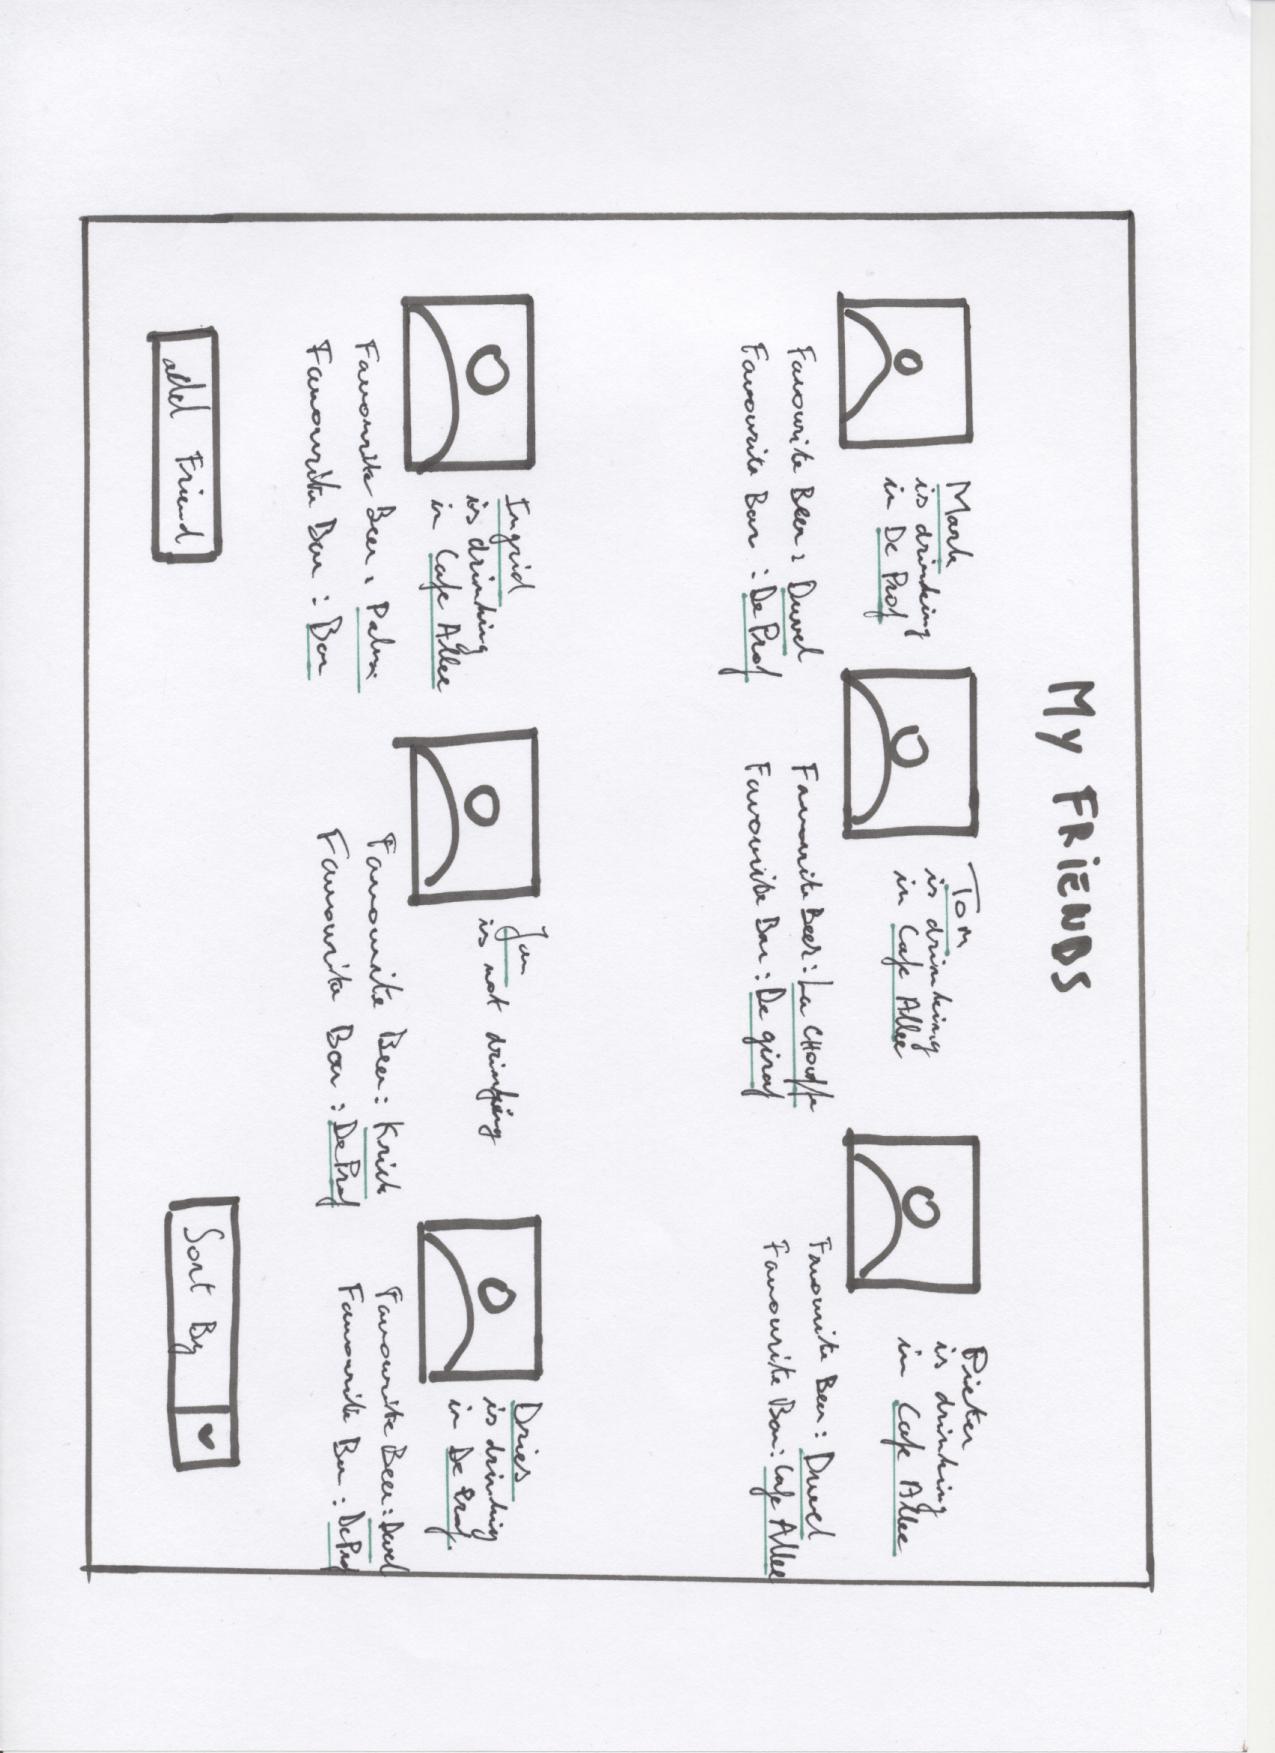 My FRiENDS
Mark
is drinking
in De Prof
Favourite Beer: Duvel
Favourite Bar: De Prof
Tom
is drinking
in Cafe Allee
Favourite Beer: La CHouffe
Favourite Bar: De giraf
Pieter
is drinking
in Cafe Allee
Favourite Beer: Duvel
Favourite Bar: Cafe Allee
Ingrid
is drinking
in Cafe Allee
Favourite Beer: Palm
Favourite Bar: Bar
Jan
is not drinking
Favourite Beer: Kriek
Favourite Bar: De Prof
Dries
is drinking
in De Prof.
Favourite Beer: Duvel
Favourite Bar: De Prof
add Friend
Sort By